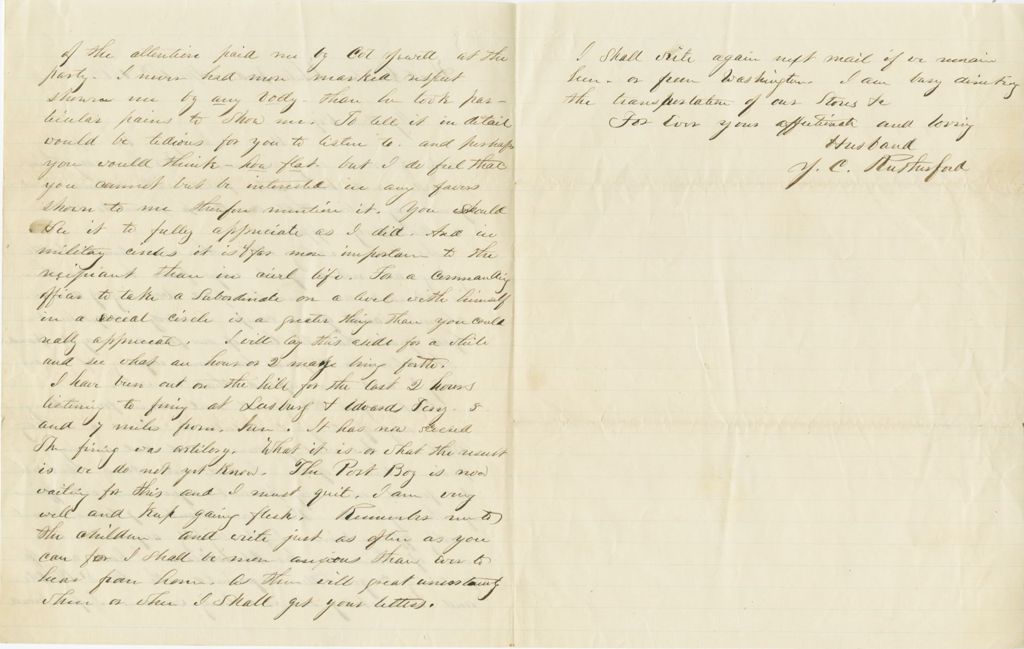 of the attention paid me by Col Jewett at the
party. I never had more marked respect
shown me by any body. than he took par-
ticular pains to show me. To tell it in detail
would be tedious for you to listen to. and perhaps
you would think - how flat. but I do feel that
you cannot but be interested in any favors
shown to me therefore mention it. You should
see it to fully appreciate as I did. And in
military circles it is far more important to the
recipiant than in civil life. For a commanding
officer to take a Subordinate on a level with himself
in a social circle is a greater thing than you could
really appreciate. I will lay this aside for a while
and see what an hour or 2 may bring forth.
I have been out on the hill for the last 2 hours
listening to firing at Leesburg & Edwards Fery - 5
and 7 miles from here. It has now ceased
The firing was artilery. What it is or what the result
is we do not yet know. The Post Boy is now
waiting for this and I must quit. I am very
well and keep gaing flesh. Remember me to
the children. and write just as often as you
can for I shall be more anxious than ever to
hear from home. as there will great uncertainty
when or where I shall get your letters.
I shall write again next mail if we remain
here. or from Washington. I am busy directing
the transportation of our Stores &c
For Ever your affectionate and loving
Husband
J. C. Rutherford